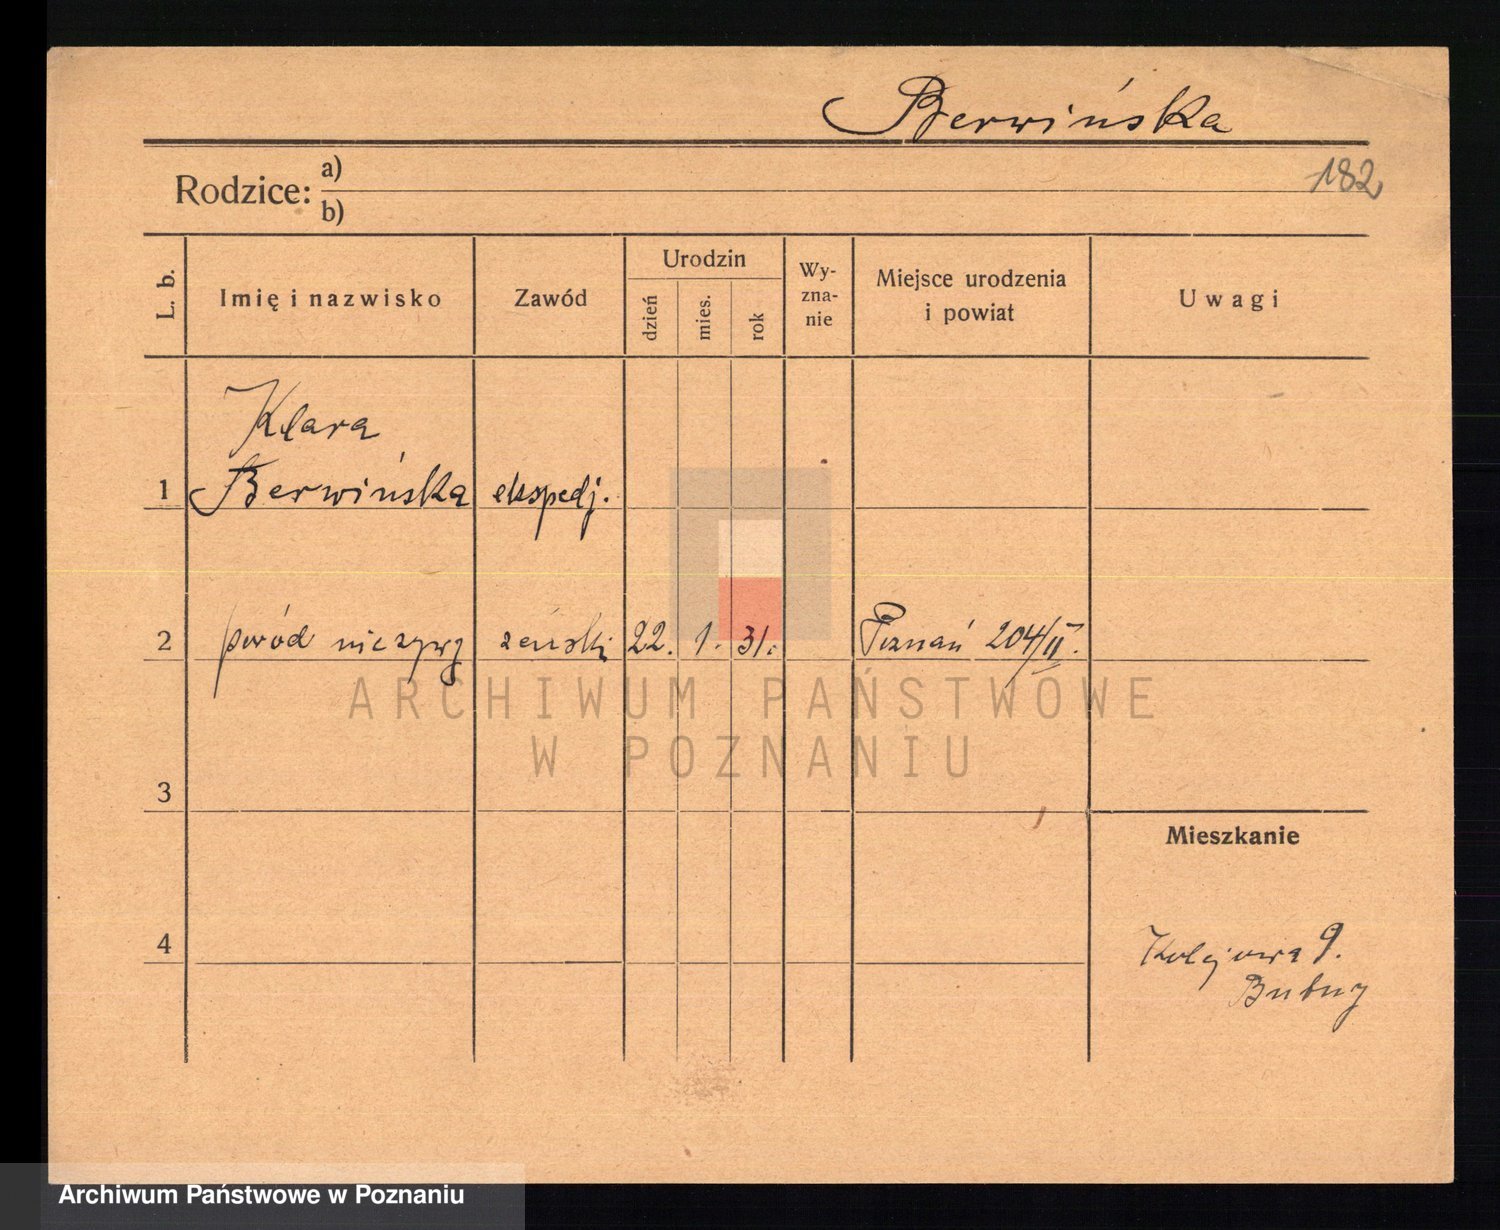 Berwińska
182
Rodzice: a)
b)
L. b.
Imię i nazwisko
Zawód
Urodzin
dzień
mies.
rok
Wy-
zna-
nie
Miejsce urodzenia
i powiat
Uwagi
Klara
1 Berwińska ekspedj.
2 poród nieżywy żeński 22. 1. 31. Poznań 204/II.
ARCHIWUM PAŃSTWOWE
W POZNANIU
3
Mieszkanie
4
Kolejowa 9.
Archiwum Państwowe w Poznaniu